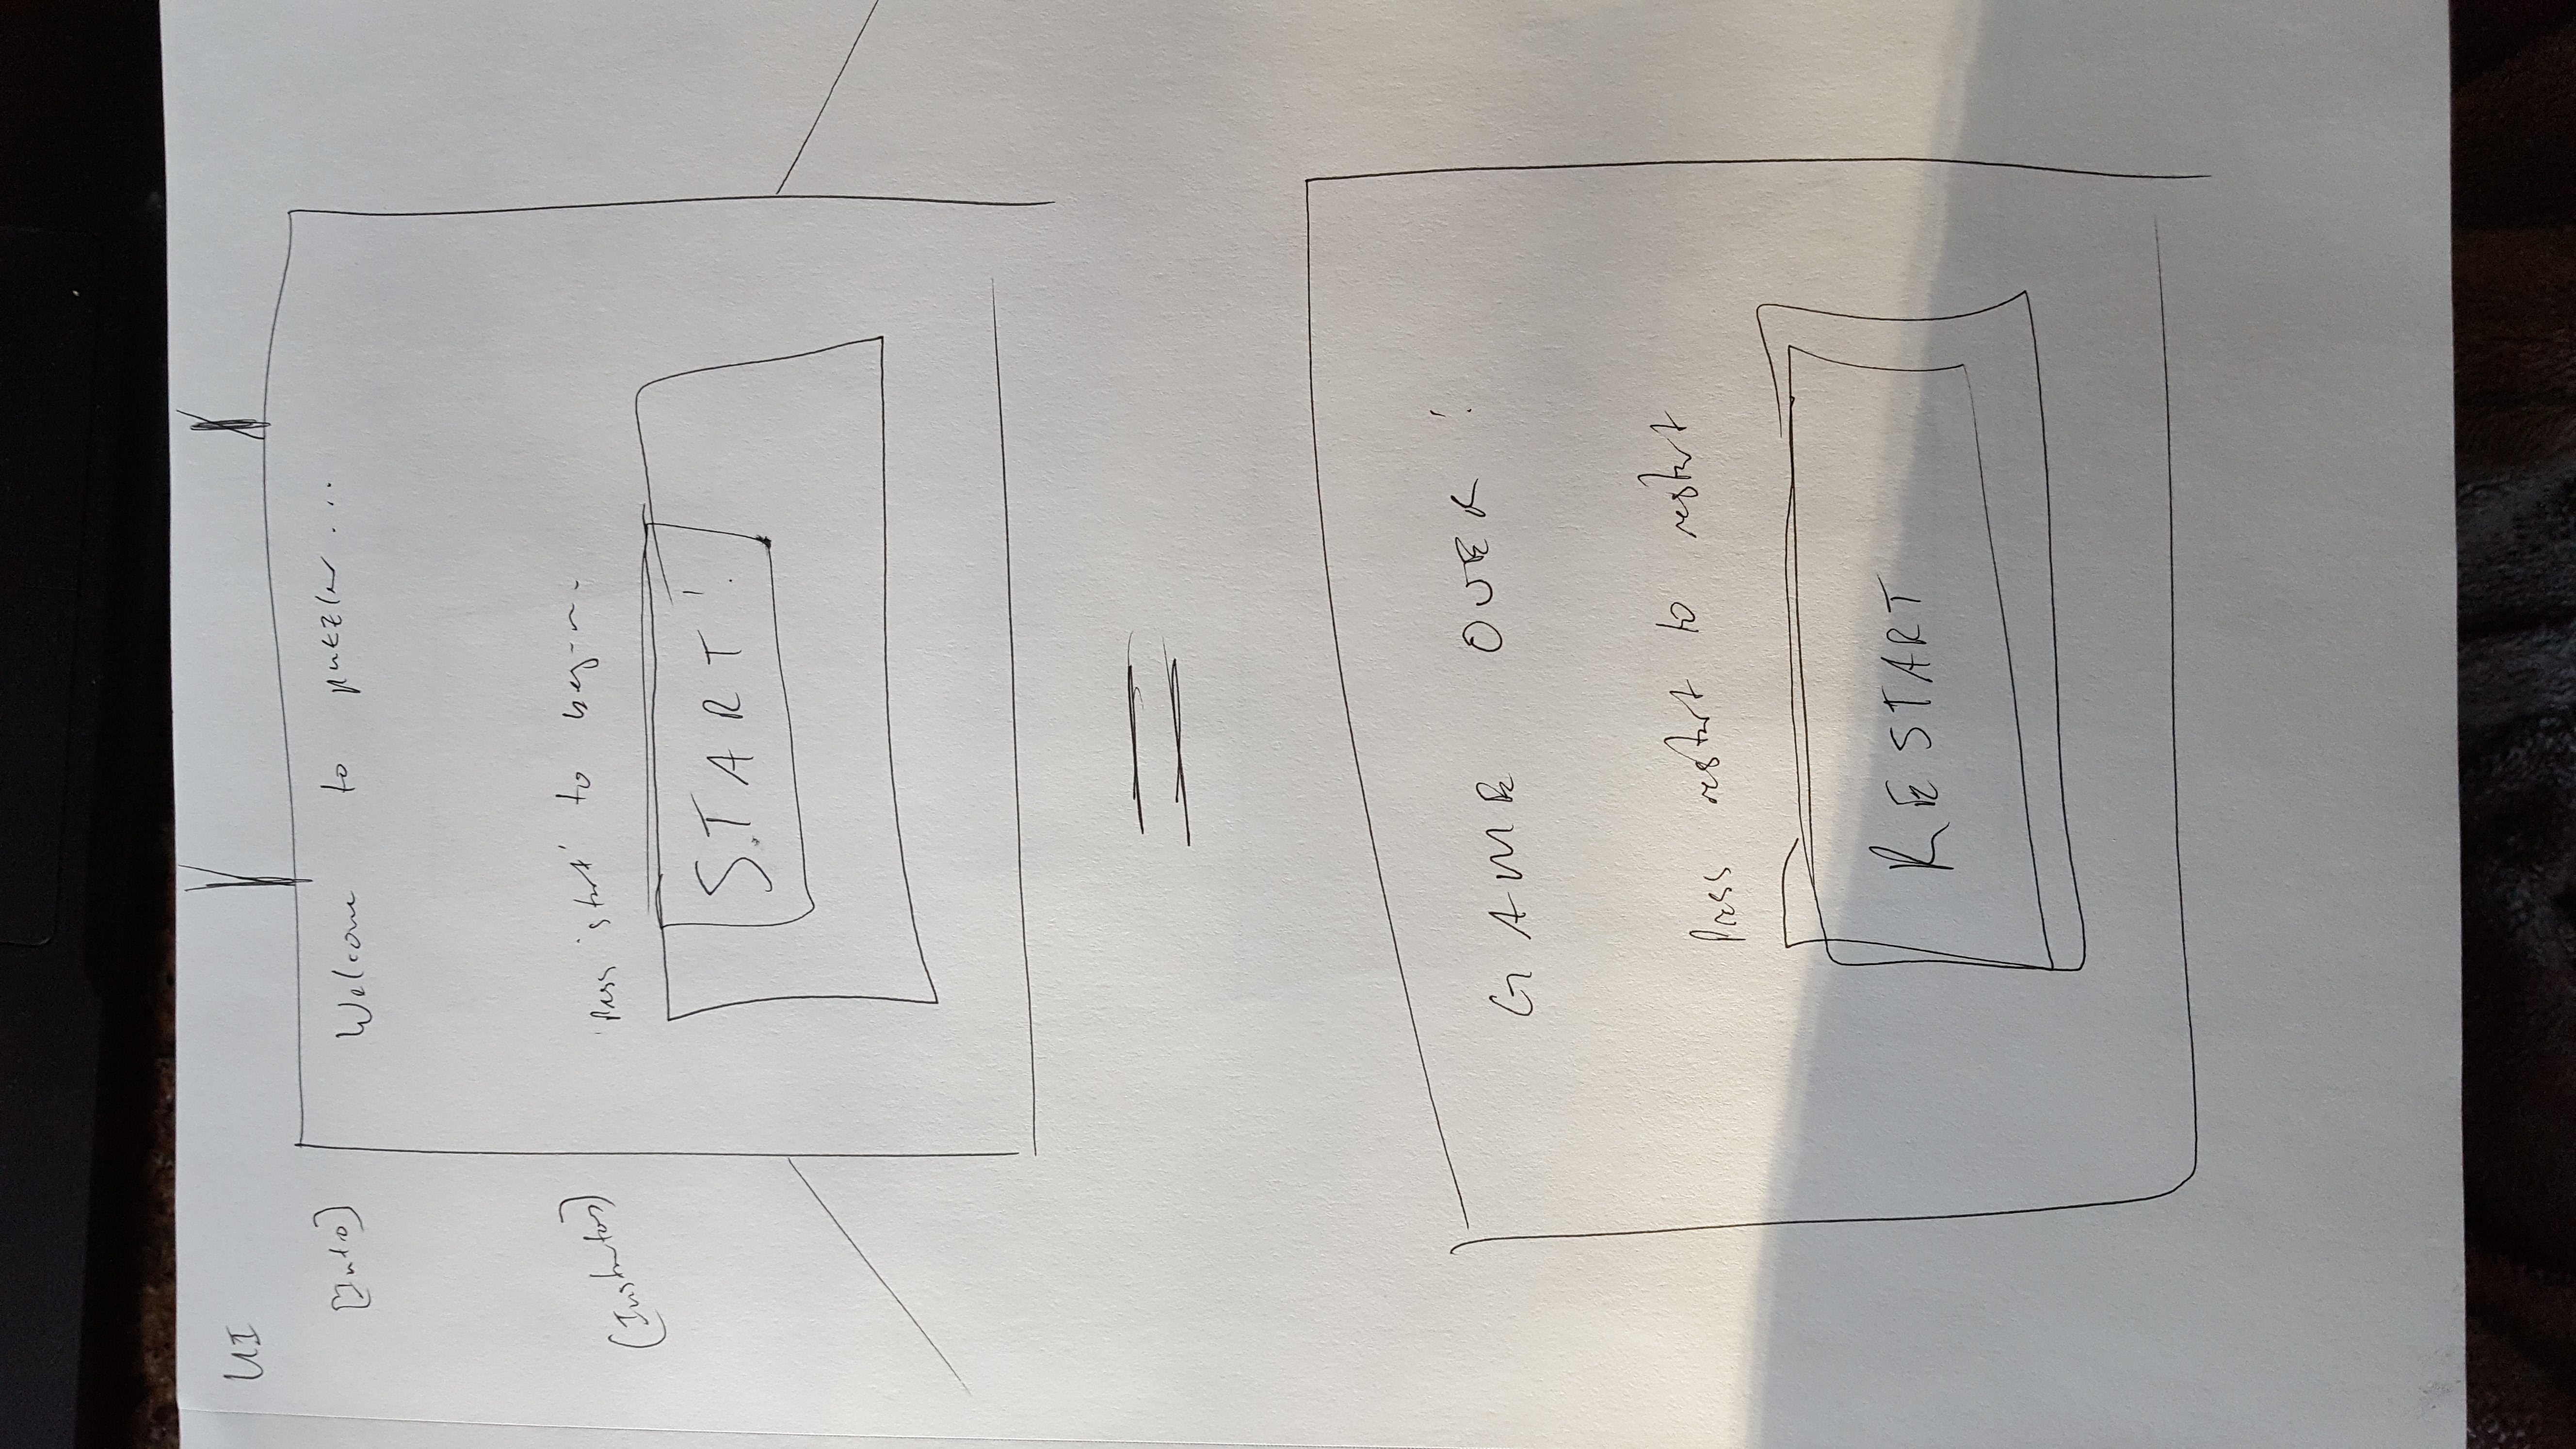 UI
[Intro]
Welcome to puzzler...
(Instructions)
Press 'start' to begin.
START!
GAME OVER!
Press restart to restart
RESTART